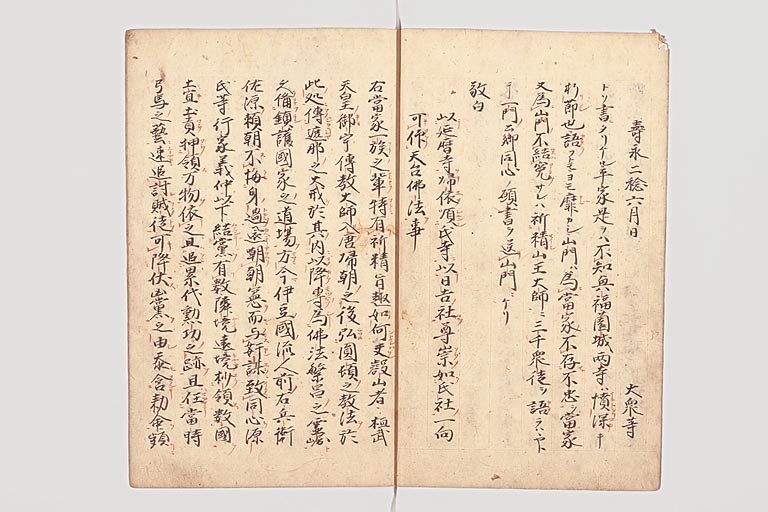 壽永二稔六月日
大衆等
トソ書タリケル平家是ヲハ不知興福園城両寺ハ憤深キ
折節也語フトモヨモ靡カシ山門ハ為當家不存不忠ヲ當家
又為山門不結寃サレハ祈精山王大師ニ三千衆徒ヲ語ハヽヤト
テ一門ノ卿同心ノ願書ヲ送山門ニケリ
敬白
以延暦寺帰依准氏寺以日吉社尊崇如氏社一向
可仰天台佛法事
右當家一族之輩特有祈精旨趣如何叡山者桓武
天皇御宇傳教大師入唐帰朝之後弘圓頓之教法於
此処傳遮那之大戒於其内以降專為佛法繁昌之霊崛
久備鎮護國家之道場方今伊豆國流人前右兵衛
佐源頼朝不悔身過還嘲朝憲而与奸謀致同心源
氏等行家義仲以下結黨有数隣境遠境抄領数國
土宜土貢押領万物依之且追累代勲功之跡且任當時
弓馬之藝速追討賊徒可降伏凶黨之由忝含勅命頻